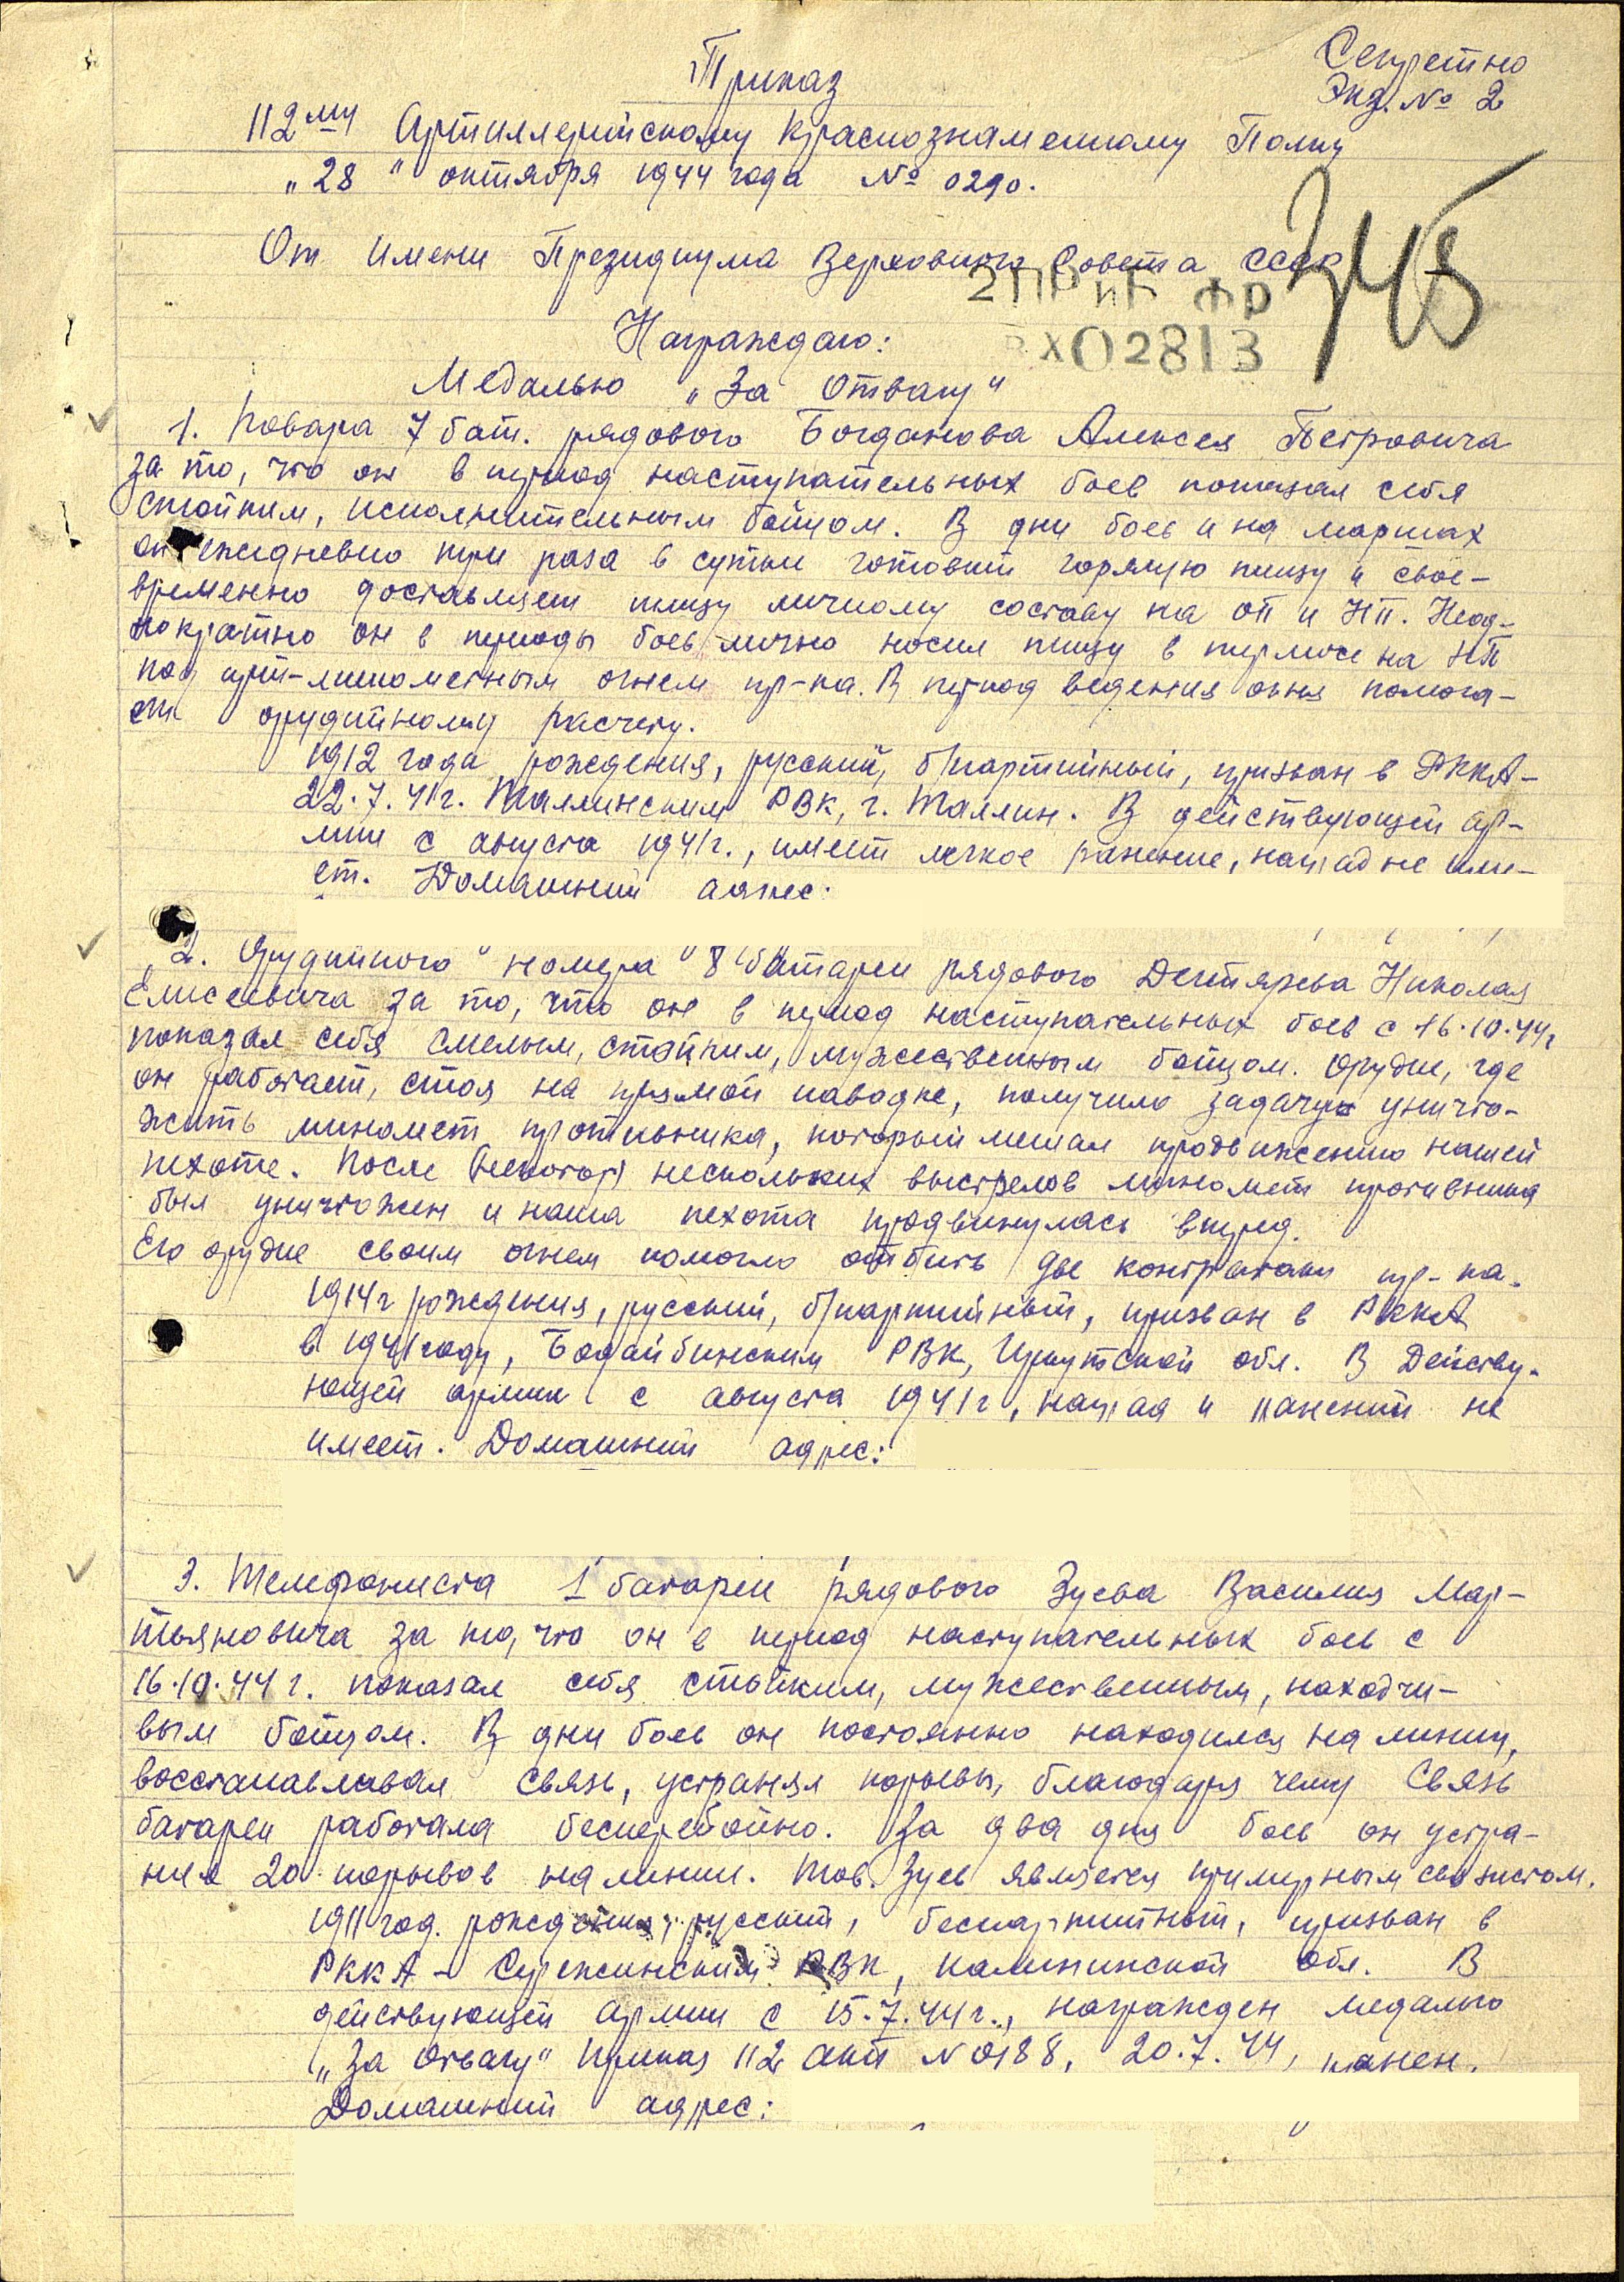 Секретно
Экз. № 2
Приказ
112му Артиллерийскому Краснознаменному Полку
"28" октября 1944 года № 0290.
От имени Президиума Верховного Совета СССР
345
2 ПРИБ ФР
ВХ02813
Награждаю:
Медалью "За Отвагу"
1. Повара 7 бат. рядового Богданова Алексея Петровича
за то, что он в период наступательных боев показал себя
стойким, исполнительным бойцом. В дни боев и на маршах
он ежедневно три раза в сутки готовит горячую пищу и свое-
временно доставляет пищу личному составу на ОП и НП. Неод-
нократно он в периоды боев лично носил пищу в термосе на НП
под арт-минометным огнем пр-ка. В период ведения огня помога-
ет орудийному расчету.
1912 года рождения, русский, б/партийный, призван в РККА-
22.7.41г. Таллинским РВК, г. Таллин. В действующей ар-
мии с августа 1941г., имеет легкое ранение, наград не име-
ет. Домашний адрес:
2. Орудийного "номера" 8 батареи рядового Дегтярева Николая
Елисеевича за то, что он в период наступательных боев с 16.10.44г
показал себя смелым, стойким, мужественным бойцом. Орудие, где
он работает, стоя на прямой наводке, получило задачу уничто-
жить миномет противника, который мешал продвижению нашей
пехоте. После (некотор) нескольких выстрелов миномет противника
был уничтожен и наша пехота продвинулась вперед.
Его орудие своим огнем помогло отбить две контратаки пр-ка.
1914г рождения, русский, б/партийный, призван в РККА
в 1941 году, Бодайбинским РВК, Иркутской обл. В Действу-
ющей армии с августа 1941г, наград и ранений не
имеет. Домашний адрес:
3. Телефониста 1 батареи рядового Зуева Василия Мар-
тьяновича за то, что он в период наступательных боев с
16.10.44г. показал себя стойким, мужественным, находчи-
вым бойцом. В дни боев он постоянно находился на линии,
восстанавливал связь, устранял порывы, благодаря чему связь
батареи работала бесперебойно. За два дня боев он устра-
нил 20 порывов на линии. Тов. Зуев является примерным связистом.
1911 год. рождения, русский, беспартийный, призван в
РККА - Сережинским РВК, Калининской обл. В
действующей армии с 15.7.41г., награжден медалью
"За Отвагу" Приказ 112 АКП № 0188, 20.7.44, ранен.
Домашний адрес: